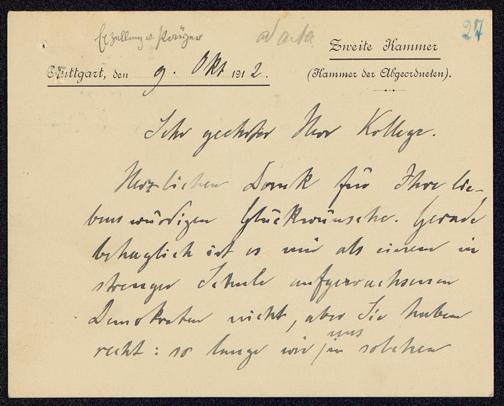 ad acta
27
Zweite Kammer
(Kammer der Abgeordneten).
Stuttgart, den 9. Okt 1912.
Sehr geehrter Herr Kollege.
Herzlichen Dank für Ihre lie-
benswürdigen Glückwünsche. Gerade
behaglich ist es mir als einem in
strenger Schule aufgewachsenen
Demokraten nicht, aber Sie haben
recht: so lange wir uns in solchen